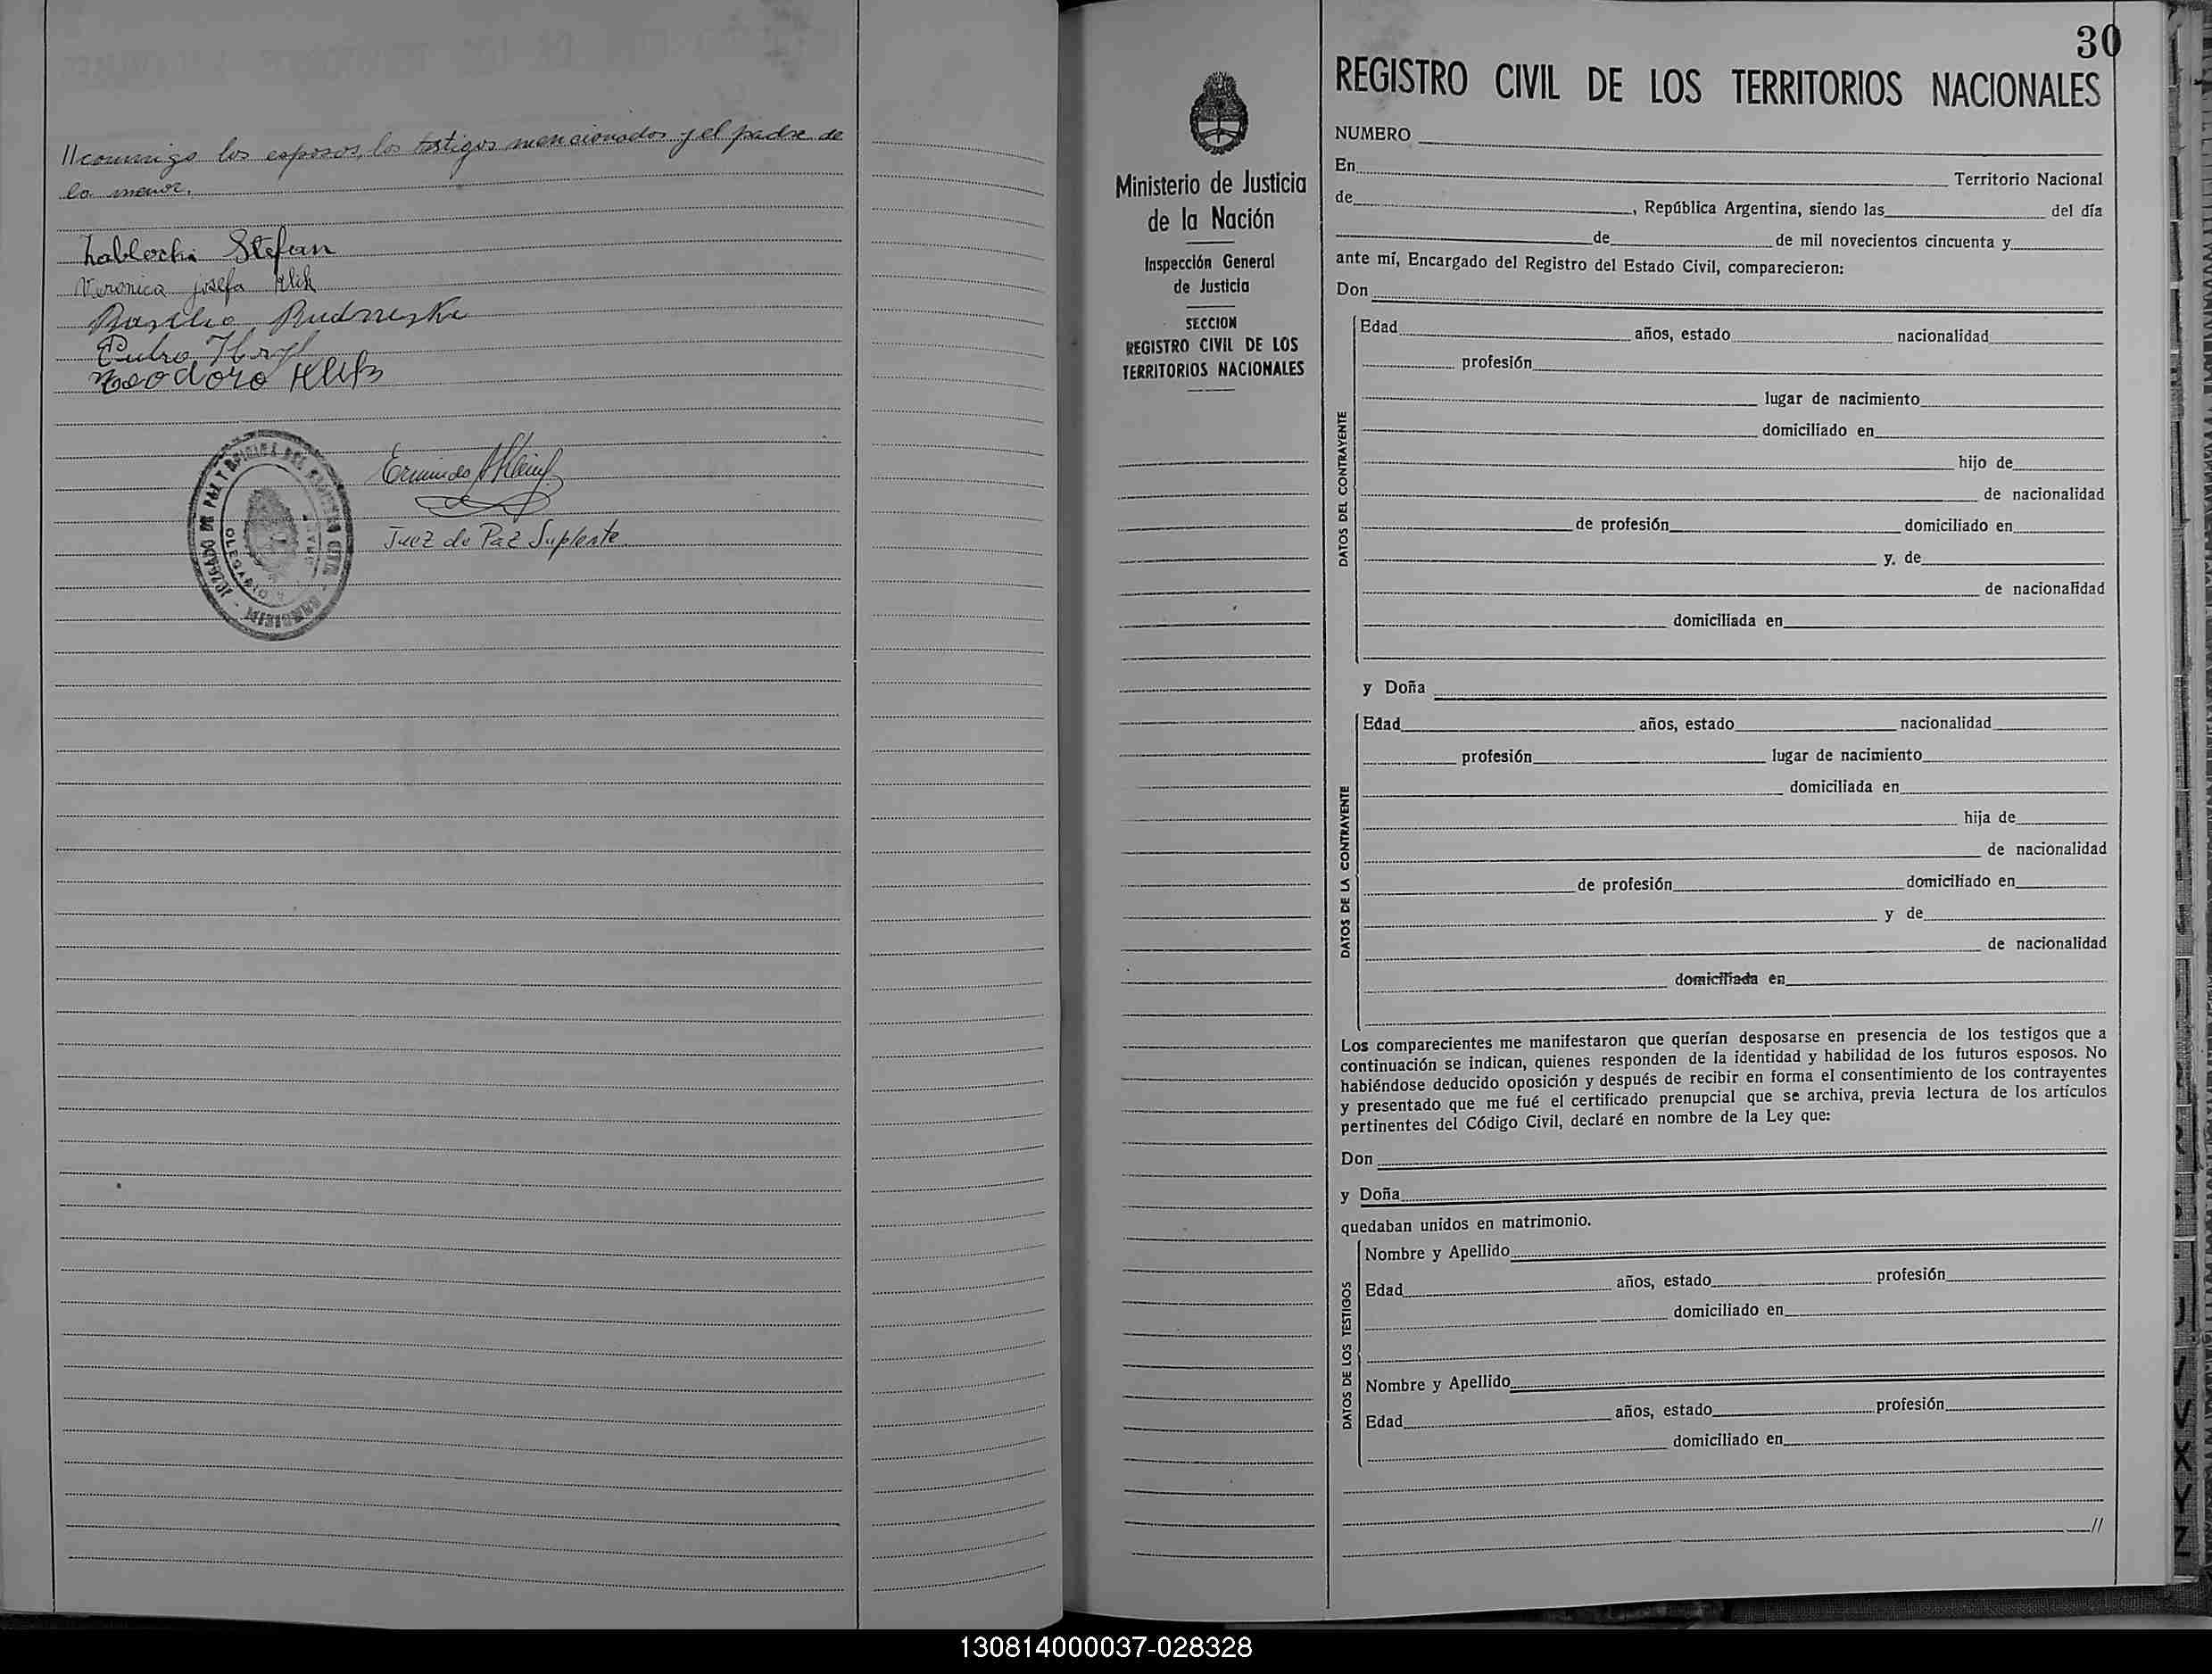 //conmigo los esposos, los testigos mencionados y el padre de
la menor.
Zablocki Stefan
Veronica josefa Klek
Basilio Rudniski
Pedro
Teodoro
JUZGADO DE PAZ Y OFICINA DEL REGISTRO CIVIL
OLEGARIO V.
MISIONES
Ermindo
Juez de Paz Suplente
30
Ministerio de Justicia
de la Nación
Inspección General
de Justicia
SECCION
REGISTRO CIVIL DE LOS
TERRITORIOS NACIONALES
REGISTRO CIVIL DE LOS TERRITORIOS NACIONALES
NUMERO
En Territorio Nacional
de , República Argentina, siendo las del día
de de mil novecientos cincuenta y
ante mí, Encargado del Registro del Estado Civil, comparecieron:
Don
DATOS DEL CONTRAYENTE
Edad años, estado nacionalidad
profesión
lugar de nacimiento
domiciliado en
hijo de
de nacionalidad
de profesión domiciliado en
y. de
de nacionalidad
domiciliada en
y Doña
DATOS DE LA CONTRAYENTE
Edad años, estado nacionalidad
profesión lugar de nacimiento
domiciliada en
hija de
de nacionalidad
de profesión domiciliado en
y de
de nacionalidad
domiciliada en
Los comparecientes me manifestaron que querían desposarse en presencia de los testigos que a
continuación se indican, quienes responden de la identidad y habilidad de los futuros esposos. No
habiéndose deducido oposición y después de recibir en forma el consentimiento de los contrayentes
y presentado que me fué el certificado prenupcial que se archiva, previa lectura de los artículos
pertinentes del Código Civil, declaré en nombre de la Ley que:
Don
y Doña
quedaban unidos en matrimonio.
DATOS DE LOS TESTIGOS
Nombre y Apellido
Edad años, estado profesión
domiciliado en
Nombre y Apellido
Edad años, estado profesión
domiciliado en
//
J
V
X
Y
Z
130814000037-028328